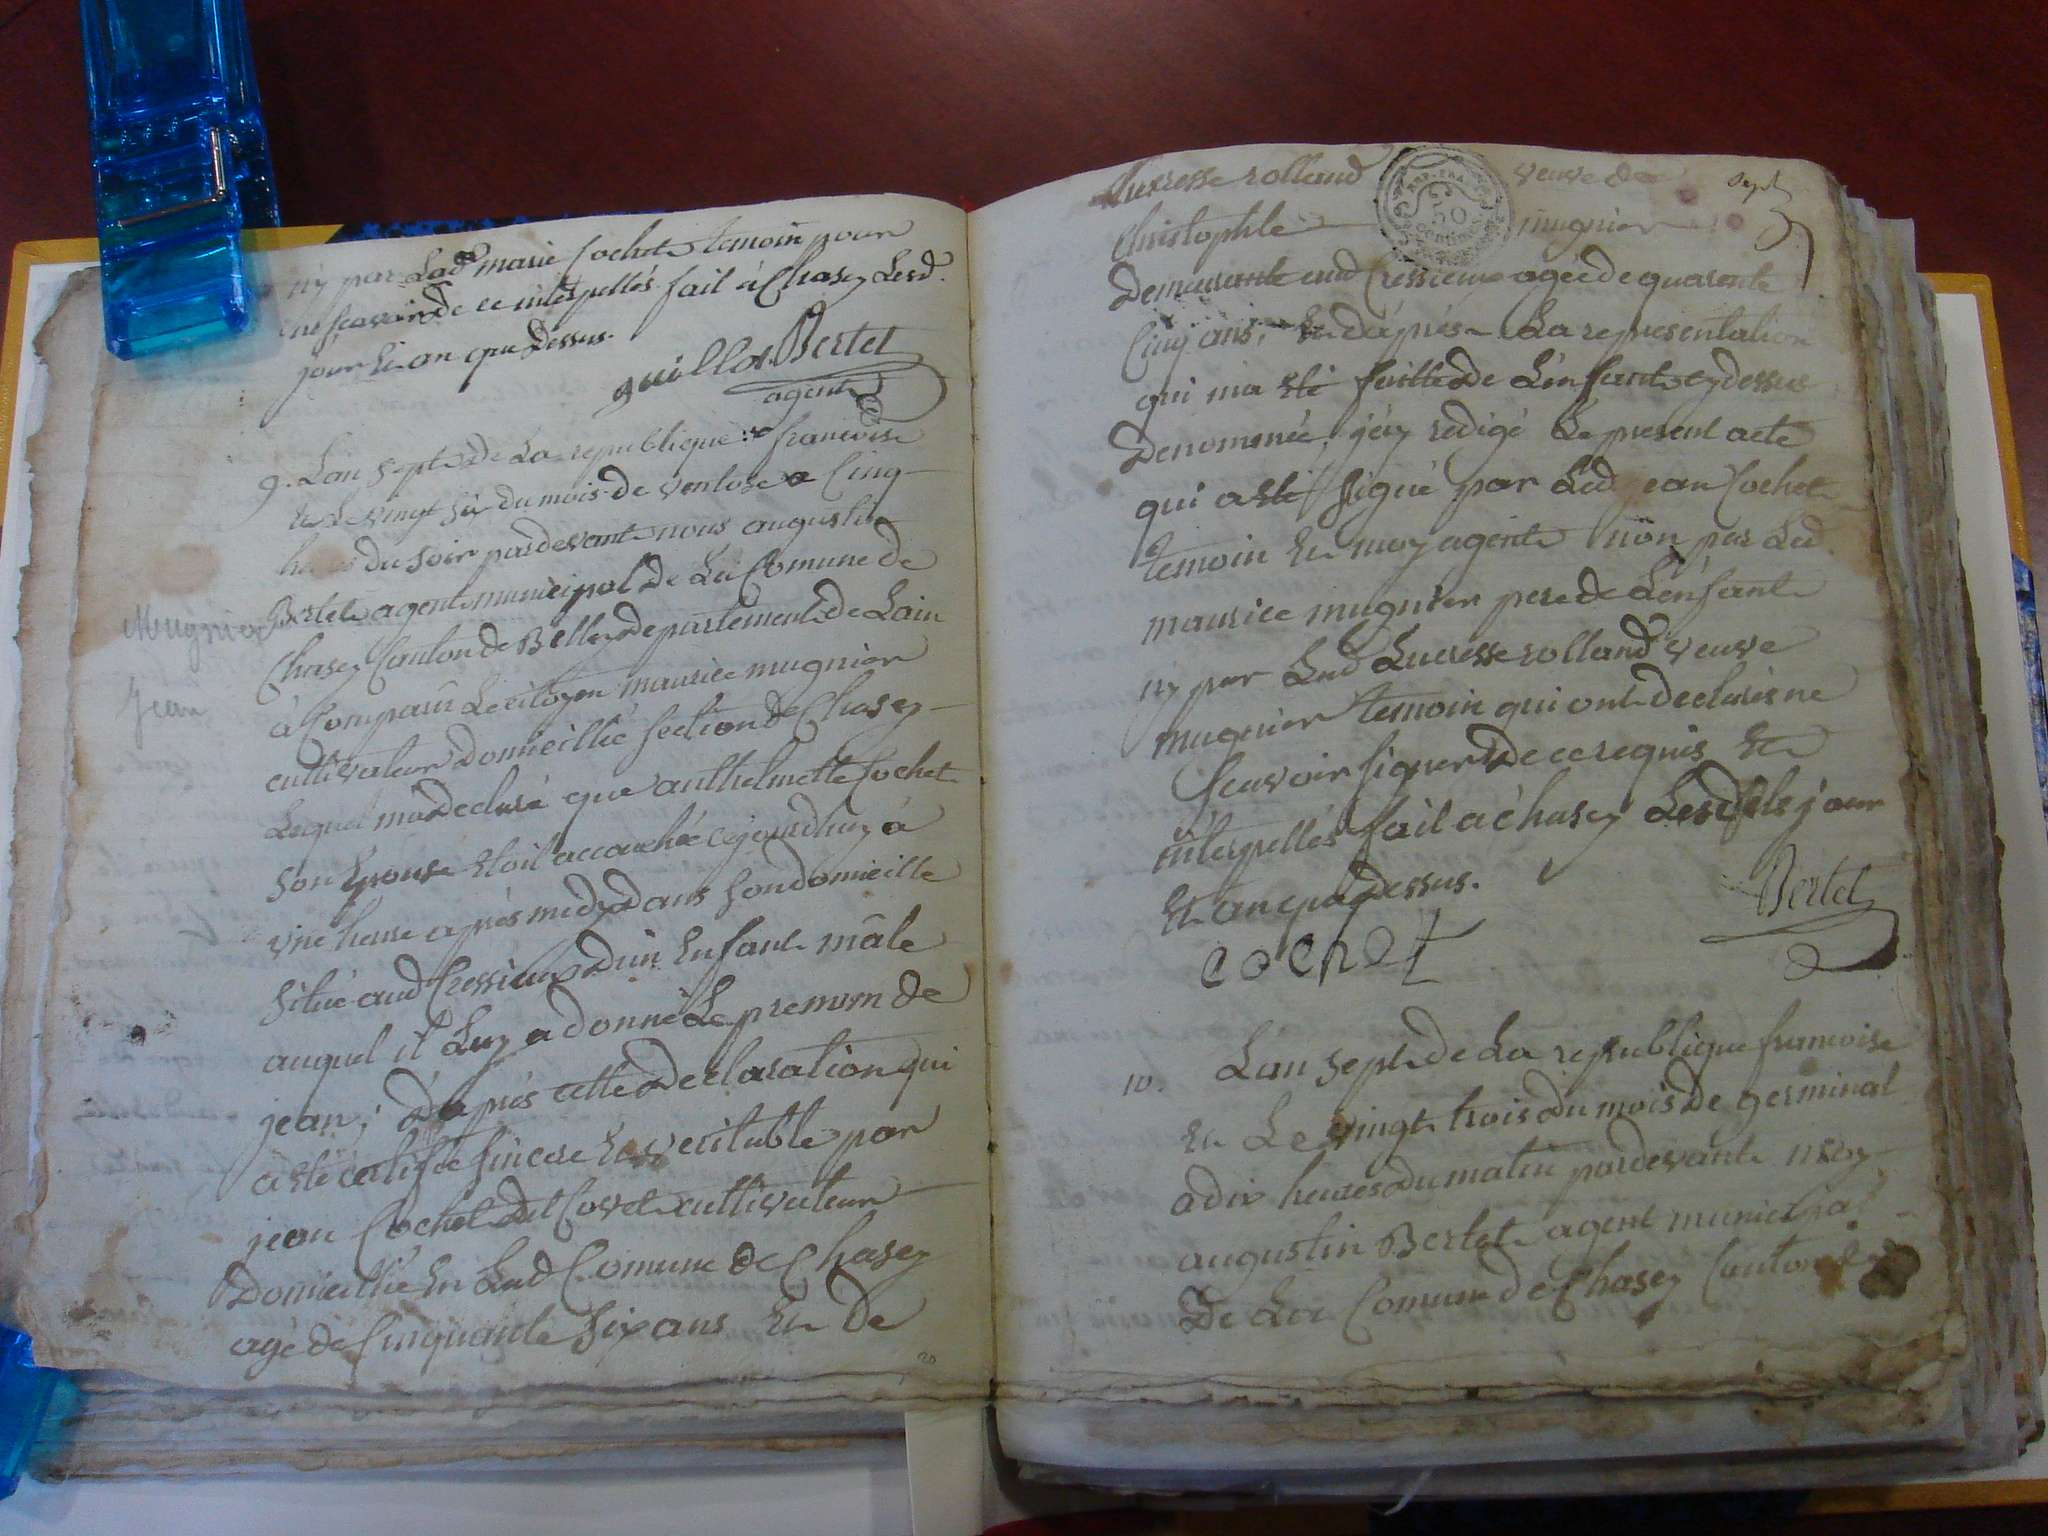 ny par Lad marie Cochet temoin pour
ne scavoir de ce interpellés fait à Chasey Lesd.
jour et an que Dessus.
guillot Bertet
agent
Mugnier
Jean
9. L'an sept de La republique francoise
et Le vingt six du mois de ventose a Cinq
heures du soir pardevant nous augustin
Bertet agent municipal De La Comune de
Chasey Canton de Belley departement de Lain
à Comparu Le citoyen maurice mugnier
cultivateur Domicillié section de Chasey
Lequel ma declaré que anthelmette Cochet
son Epouse etoit accouchée cejourdhuy à
vne heure après midy dans son domicille
situé aud Cressieux d'un Enfant mâle
auquel il Luy a donné Le prenom de
jean; D'après cette declaration qui
a eté certifié sincere et veritable par
jean Cochet dit Covet cultivateur
Domicillié En Lad Comune de Chasey
agé de Cinquante six ans et de
20
Lucresse rolland veuve de
Christophle mugnier
REP. FRA.
50
centimes
sept
Demeurante aud Cressieux agée de quarente
Cinq ans, et d'après La representation
qui ma eté faitte de L'enfant cy dessus
Denommée, j'ay redigé Le present acte
qui a eté signé par Led jean Cochet
temoin et moy agent non par Led.
maurice mugnier pere de L'enfant
ny par Lad Lucresse rolland veuve
mugnier temoin qui ont declarés ne
scavoir signer de ce requis et
interpellés fait a chasey Lesdits jour
et an que Dessus.
Bertet
COCHET
10. L'an sept de La republique francoise
et Le vingt trois du mois de germinal
a dix heures du matin pardevant moy
augustin Bertet agent municipal
De La Comune de Chasey Canton de